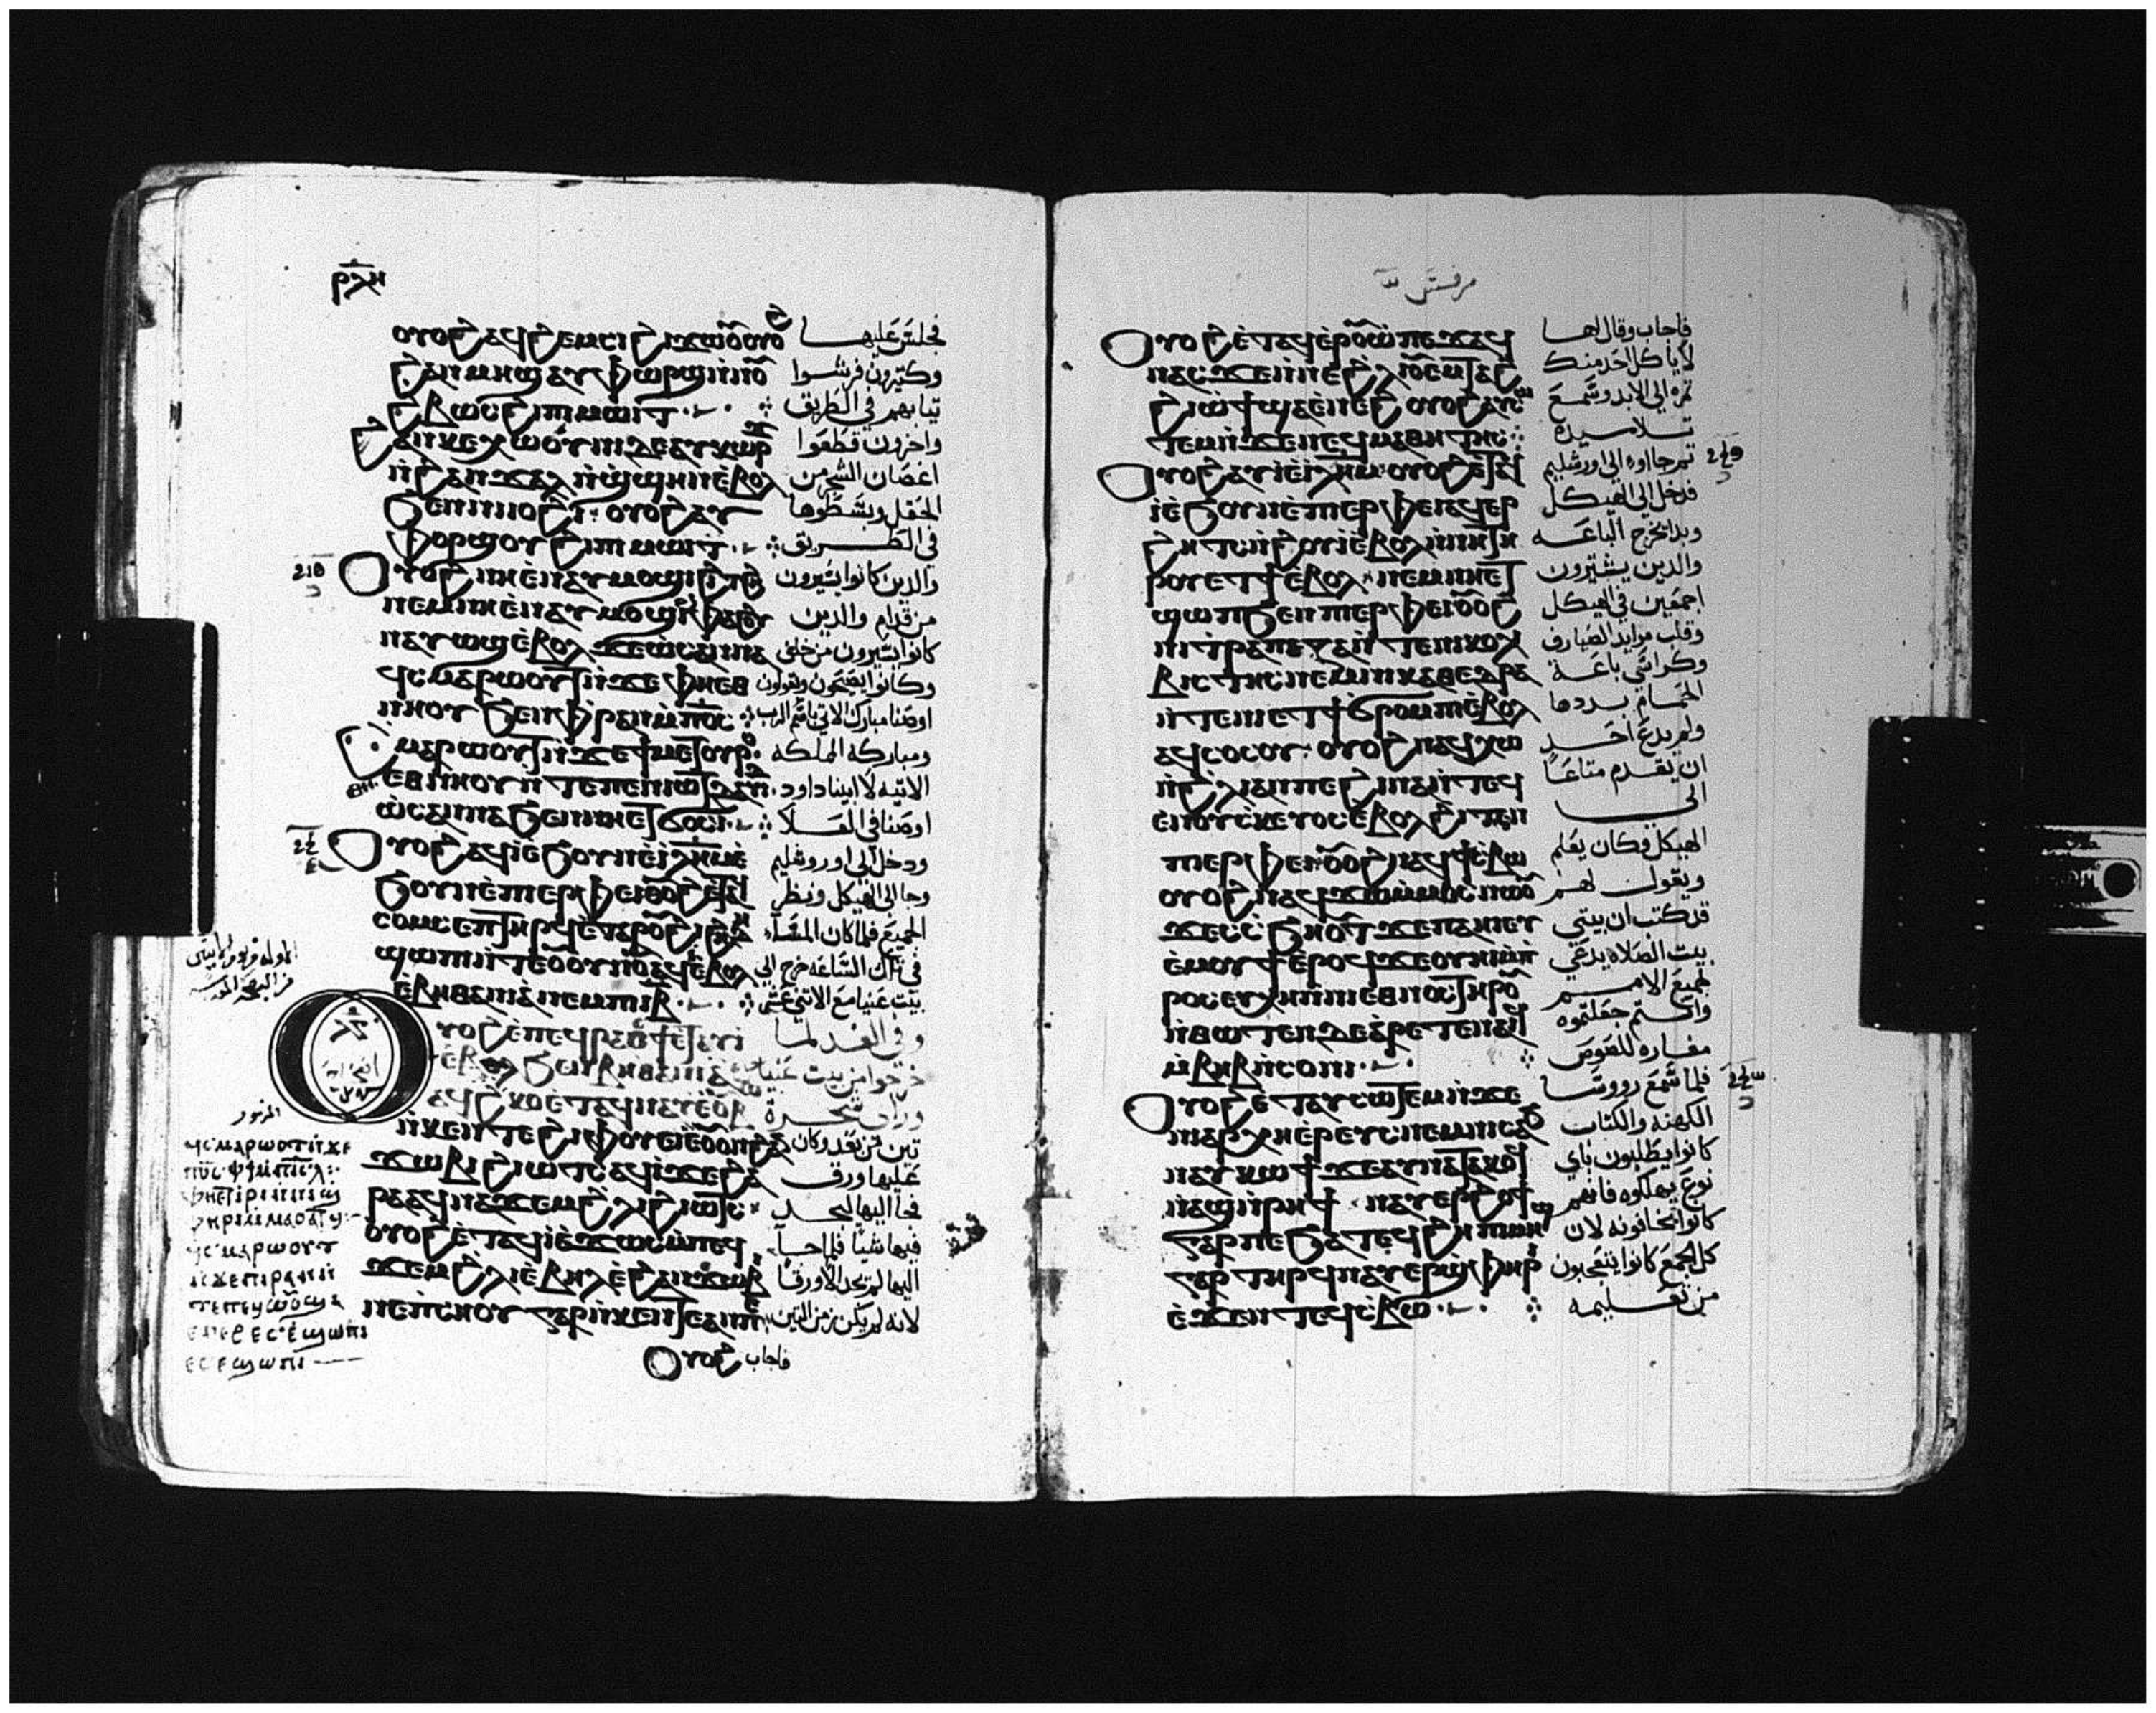 ⲣⲗⲏ
ⲟⲩⲟϩ ⲁϥϩⲉⲙⲥⲓ ϩⲓϫⲱⲟⲩ ⲟⲩⲟϩ فجلس عليها
ϩⲁⲛⲙⲏϣ ⲁⲩⲫⲱⲣϣ ⲛⲛⲟⲩ وكتيرون فرشوا
ϩⲃⲱⲥ ϩⲓⲡⲓⲙⲱⲓⲧ تيابهم في الطريق
ϩⲁⲛⲕⲉⲭⲱⲟⲩⲛⲓ ⲇⲉ ⲁⲩⲕⲱⲣϫ واخرون قطعوا
ⲛϩⲁⲛϫⲁⲗ ⲛϣϣⲏⲛ ⲉⲃⲟⲗ اغصان الشجر من
ϧⲉⲛ ⲛⲓⲓⲟϩⲓ ⲟⲩⲟϩ ⲁⲩ الحقل وبسطوها
ⲫⲟⲣϣⲟⲩ ϩⲓⲡⲓⲙⲱⲓⲧ في الطريق
ⲟⲩⲟϩ ⲛⲏ ⲉⲛⲁⲩⲙⲟϣⲓ والدين كانوا يسيرون
ⲛⲉⲙ ⲛⲏ ⲉⲛⲁⲩⲙⲟϣⲓ من قدام والدين
ⲛⲁⲩⲱϣ ⲉⲃⲟⲗ ϫⲉ ⲱⲥⲁⲛⲛⲁ كانوا يسيرون من خلف
ϥⲥⲙⲁⲣⲱⲟⲩⲧ ⲛϫⲉ ⲫⲏⲉⲑ وكانوا يصيحون ويقولون
ⲛⲏⲟⲩ ϧⲉⲛ ⲫⲣⲁⲛ ⲙⲡⲟⲥ اوصنا مبارك الاتي باسم الرب
ⲥⲙⲁⲣⲱⲟⲩⲧ ⲛϫⲉ ϯⲙⲉⲧⲟⲩⲣⲟ ومباركه المملكه
ⲉⲑⲛⲏⲟⲩ ⲛⲧⲉ ⲡⲉⲛⲓⲱⲧ ⲇⲁⲇ الاتيه لابينا داود
ⲱⲥⲁⲛⲛⲁ ϧⲉⲛ ⲛⲏ ⲉⲧϭⲟⲥⲓ اوصنا في العلا
ⲟⲩⲟϩ ⲁϥⲓ ⲉϧⲟⲩⲛ ⲉⲓⲗⲏⲙ ⲉ ودخل الى اوروشليم
ϧⲟⲩⲛ ⲉⲡⲓⲉⲣⲫⲉⲓ ⲟⲩⲟϩ ⲉⲧⲁϥ وجا الى الهيكل ونظر
ⲥⲟⲙⲥ ⲉⲡⲧⲏⲣϥ ⲉⲧⲁ ⲣⲟⲩϩⲓ ϩⲏⲇⲏ الجميع فلما كان المسا
ϣⲱⲡⲓ في تلك الساعه خرج الى
ⲉⲃⲏⲑⲁⲛⲓⲁ ⲛⲉⲙ ⲡⲓⲓⲃ بيت عنيا مع الاثني عشر
ⲟⲩⲟϩ ⲉⲡⲉϥⲣⲁⲥϯ ⲉⲧⲁⲩⲓ وفي الغد لما
ⲉⲃⲟⲗ ϧⲉⲛ ⲃⲏⲑⲁⲛⲓⲁ خرجوا من بيت عنيا
ورأى شجرة
ⲛⲕⲉⲛⲧⲉ ϩⲓⲫⲟⲩⲉⲓ تين من بعد وكان
ϫⲱⲃⲓ ϩⲓⲱⲧⲥ ⲁϥⲓ ϫⲉ ϩⲁ عليها ورق
ⲣⲁ ⲁϥⲛⲁϫⲉⲙ ϩⲗⲓ ϩⲓⲱⲧⲥ فجا اليها ليجد
ⲟⲩⲟϩ ⲉⲧⲁϥⲓ ⲉϫⲱⲥ ⲙⲡⲉϥ فيها شيا فلما جا
ϫⲉⲙ ϩⲗⲓ ⲉⲃⲏⲗ ⲉϩⲁⲛϫⲱⲃⲓ اليها لم يجد الا ورقا
ⲛⲉ ⲡⲥⲏⲟⲩ ⲅⲁⲣ ⲛⲕⲉⲛⲧⲉ ⲁⲛ ⲡⲉ لانه لم يكن زمن التين
ⲟⲩⲟϩ فاجاب
ϥⲥⲙⲁⲣⲱⲟⲩⲧ ⲛϫⲉ
ⲡϭⲥ ⲫϯ ⲙⲡⲓⲥⲗ
ϥⲥⲙⲁⲣⲱⲟⲩⲧ
ⲛϫⲉ ⲡⲓⲣⲁⲛ
ⲉⲥⲉϣⲱⲡⲓ
ⲉⲥⲉϣⲱⲡⲓ
مرقس
ⲟⲩⲟϩ ⲉⲧⲁϥⲉⲣⲟⲩⲱ ⲡⲉϫⲁϥ فاجاب وقال لها
ⲛⲁⲥ ϫⲉ ⲛⲛⲉ ϩⲗⲓ ⲟⲩⲉⲙ ⲟⲩⲧⲁϩ لا ياكل احد منك
ϩⲓⲱϯ ϣⲁ ⲉⲛⲉϩ ⲟⲩⲟϩ ⲁⲩⲥⲱ تمره الى الابد وسمع
ⲧⲉⲙ ⲛϫⲉ ⲛⲉϥⲙⲁⲑⲏⲧⲏⲥ تلاميده
ⲟⲩⲟϩ ⲁⲩⲓ ⲉⲓⲗⲏⲙ ⲟⲩⲟϩ ⲉⲧⲁϥ تم جااوه الى اورشليم
ⲓ ⲉϧⲟⲩⲛ ⲉⲡⲓⲉⲣⲫⲉⲓ ⲁϥⲉⲣ فدخل الى الهيكل
ϩⲏⲧⲥ ⲛϩⲓⲟⲩⲓ ⲉⲃⲟⲗ ⲛⲛⲏ ⲉⲧ وبدا يخرج الباعه
ⲛⲉⲙ ⲛⲏ ⲉⲧ والدين يشترون
ϣⲱⲡ ϧⲉⲛ ⲡⲓⲉⲣⲫⲉⲓ ⲟⲩⲟϩ اجمعين في الهيكل
ⲛⲓⲧⲣⲁⲡⲉⲍⲁ ⲛⲧⲉ ⲛⲓⲕⲟⲗ وقلب موايد الصيارف
ⲃⲓⲥⲧⲏⲥ ⲛⲉⲙ ⲛⲓⲕⲁⲑⲉⲇⲣⲁ وكراسي باعة
ⲛⲧⲉ ⲛⲏ ⲉⲧϯ ϭⲣⲟⲙⲡⲓ ⲉⲃⲟⲗ الحمام بددها
ⲁϥϥⲟⲥⲟⲩ ⲟⲩⲟϩ ⲛⲁϥⲭⲱ ولم يدع احد
ⲛϩⲗⲓ ⲁⲛ ⲡⲉ ϩⲓⲛⲁ ⲛⲧⲉϥ ان يقدم متاعا
ⲉⲛ ⲟⲩⲥⲕⲉⲩⲟⲥ ⲉⲃⲟⲗ ϩⲓⲧⲉⲛ الى
ⲡⲓⲉⲣⲫⲉⲓ ⲟⲩⲟϩ ⲛⲁϥϯⲥⲃⲱ الهيكل وكان يعلم
ⲟⲩⲟϩ ⲛⲁϥϫⲱ ⲙⲙⲟⲥ ⲛⲱⲟⲩ ويقول لهم
ϫⲉ ⲥⲥϧⲏⲟⲩⲧ ϫⲉ ⲡⲁⲏⲓ ⲉⲩ قد كتب ان بيتي
ⲉⲙⲟⲩϯ ⲉⲣⲟϥ ϫⲉ ⲟⲩⲏⲓ ⲙⲡ بيت الصلاه يدعي
ⲣⲟⲥⲉⲩⲭⲏ ⲛⲛⲓⲉⲑⲛⲟⲥ ⲧⲏⲣⲟⲩ لجميع الامم
ⲛⲑⲱⲧⲉⲛ ⲇⲉ ⲁⲣⲉⲧⲉⲛⲁⲓϥ وانتم جعلتموه
ⲙⲃⲏⲃ ⲛⲥⲟⲛⲓ مغاره للصوص
ⲟⲩⲟϩ ⲉⲧⲁⲩⲥⲱⲧⲉⲙ ⲛϫⲉ فلما سمع رووسا
ⲛⲓⲁⲣⲭⲏⲉⲣⲉⲩⲥ ⲛⲉⲙ ⲛⲓⲥⲁϧ الكهنه والكتاب
ⲛⲁⲩⲕⲱϯ ϫⲉ ⲁⲩⲛⲁⲧⲁⲕⲟϥ كانوا يطلبون باي
ⲛⲁϣ ⲛⲣⲏϯ ⲛⲁⲩⲉⲣϩⲟϯ نوع يهلكوه فانهم
ⲅⲁⲣ ⲡⲉ ϧⲁⲧⲉϥϩⲏ ⲡⲓⲙⲏϣ كانوا يخافونه لان
ⲅⲁⲣ ⲧⲏⲣϥ ⲛⲁⲩⲉⲣϣⲫⲏⲣⲓ كل الجمع كانوا يتعجبون
ⲉϫⲉⲛ ⲧⲉϥⲥⲃⲱ من تعليمه